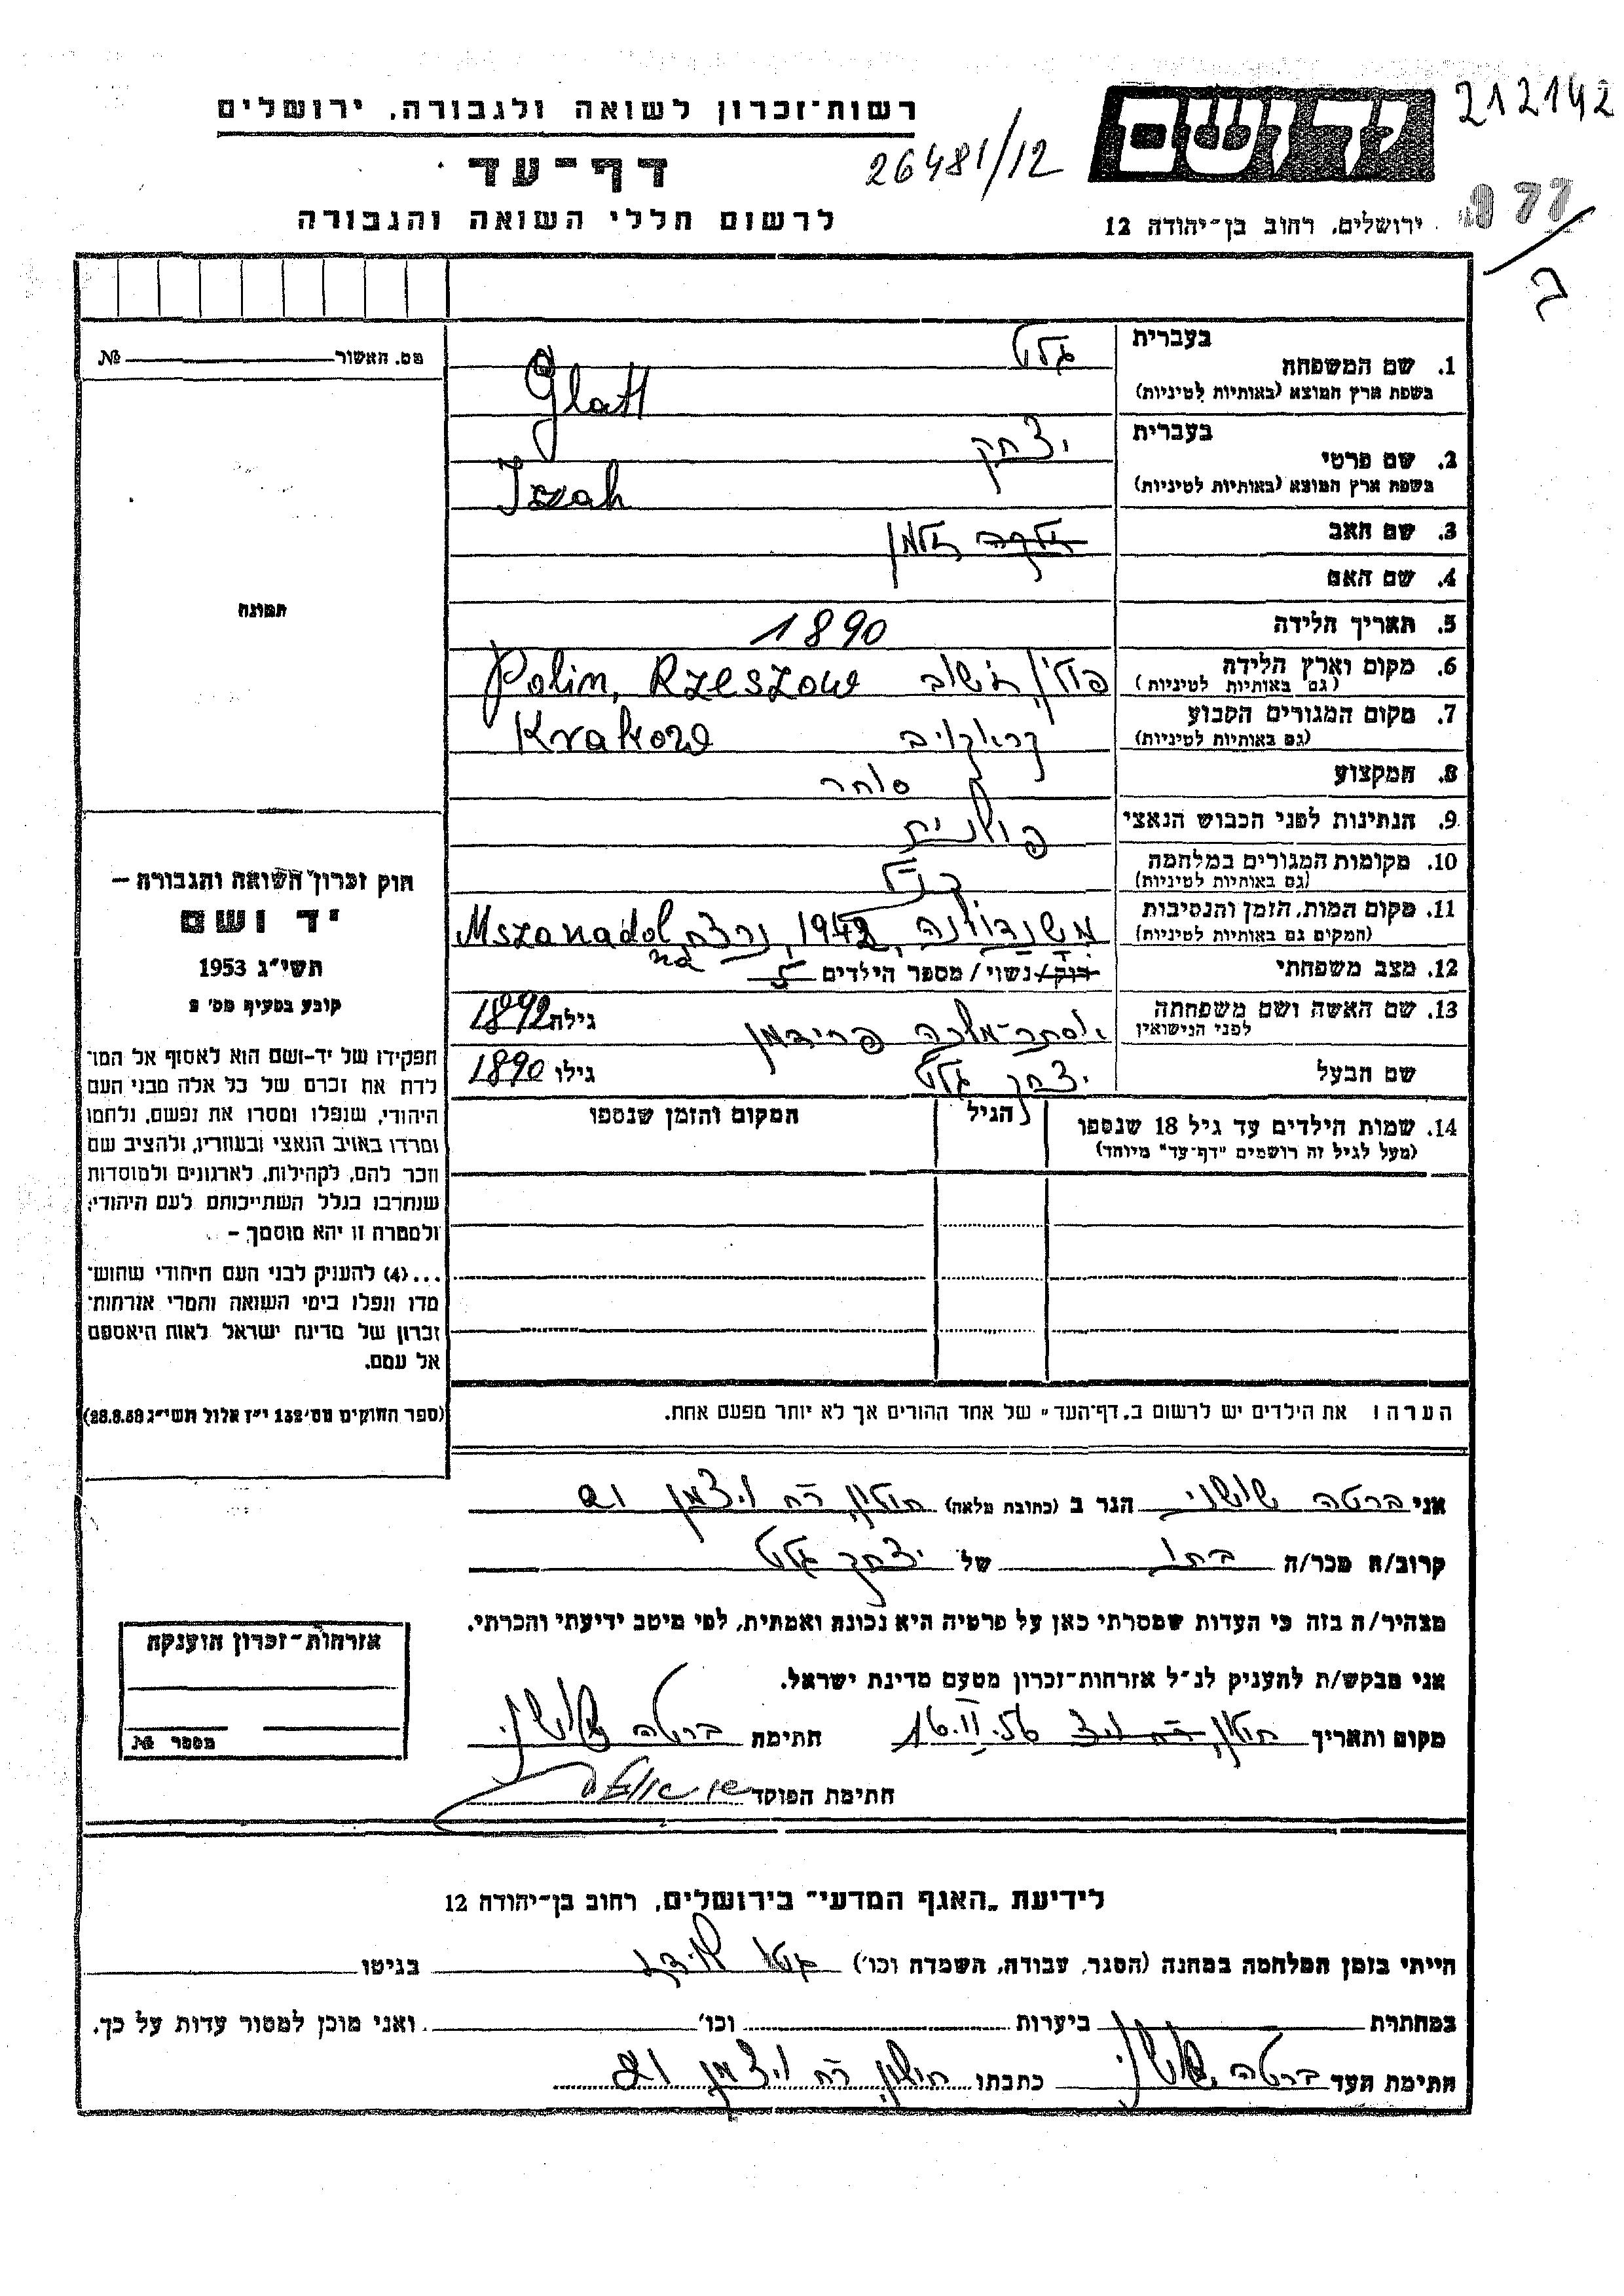 212142
יד ושם
רשות־זכרון לשואה ולגבורה, ירושלים
26481/12
דף־עד
977
ירושלים, רחוב בן־יהודה 12
לרשום חללי השואה והגבורה
ב
מס. האשור № 
1. שם המשפחה בעברית גלט
בשפת ארץ המוצא (באותיות לטיניות) Glatt
2. שם פרטי בעברית יצחק
בשפת ארץ המוצא (באותיות לטיניות) Iszak
3. שם האב זלמן
4. שם האם
תמונה
5. תאריך הלידה 1890
6. מקום וארץ הלידה (גם באותיות לטיניות) פולין, ז'שוב Polin, Rzeszow
7. מקום המגורים הקבוע (גם באותיות לטיניות) קראקויב Krakow
8. המקצוע סוחר
9. הנתינות לפני הכבוש הנאצי פולנית
10. מקומות המגורים במלחמה (גם באותיות לטיניות) כנ"ל
11. מקום המות, הזמן והנסיבות (המקום גם באותיות לטיניות) משנהדולנה, 1942, נרצח Mszanadolna
12. מצב משפחתי רוק/נשוי/מספר הילדים 5
13. שם האשה ושם משפחתה לפני הנישואין אסתר־מלכה פרידמן גילה 1892
שם הבעל יצחק גלט גילו 1890
14. שמות הילדים עד גיל 18 שנספו הגיל המקום והזמן שנספו
(מעל לגיל זה רושמים "דף־עד" מיוחד)
חוק זכרון השואה והגבורה –
יד ושם
תשי"ג 1953
קובע בסעיף מס' 2
תפקידו של יד־ושם הוא לאסוף אל המו־
לדת את זכרם של כל אלה מבני העם
היהודי, שנפלו ומסרו את נפשם, נלחמו
ומרדו באויב הנאצי ובעוזריו, ולהציב שם
וזכר להם, לקהילות, לארגונים ולמוסדות
שנחרבו בגלל השתייכותם לעם היהודי;
ולמטרה זו יהא מוסמך –
...(4) להעניק לבני העם היהודי שהוש־
מדו ונפלו בימי השואה והמרי אזרחות־
זכרון של מדינת ישראל לאות היאספם
אל עמם.
(ספר החוקים מס' 132 י"ז אלול תשי"ג 28.8.53)
הערה: את הילדים יש לרשום ב"דף־העד" של אחד ההורים אך לא יותר מפעם אחת.
אני ברטה שושני הגר ב (כתובת מלאה) חולון רח ויצמן 21
קרוב/ה מכר/ה בתו של יצחק גלט
מצהיר/ה בזה כי העדות שמסרתי כאן על פרטיה היא נכונה ואמתית, לפי מיטב ידיעתי והכרתי.
אני מבקש/ת להעניק לנ"ל אזרחות־זכרון מטעם מדינת ישראל.
מקום ותאריך חולון 16.II.56 חתימת ברטה שושני
חתימת הפוקד
אזרחות־זכרון הוענקה
מספר №
לידיעת "האגף המדעי" בירושלים, רחוב בן־יהודה 12
הייתי בזמן המלחמה במחנה (הסגר, עבודה, השמדה וכו') בגיטו
במחתרת ביערות וכו' ואני מוכן למסור עדות על כך.
חתימת העד ברטה שושני כתבתו חולון רח ויצמן 21